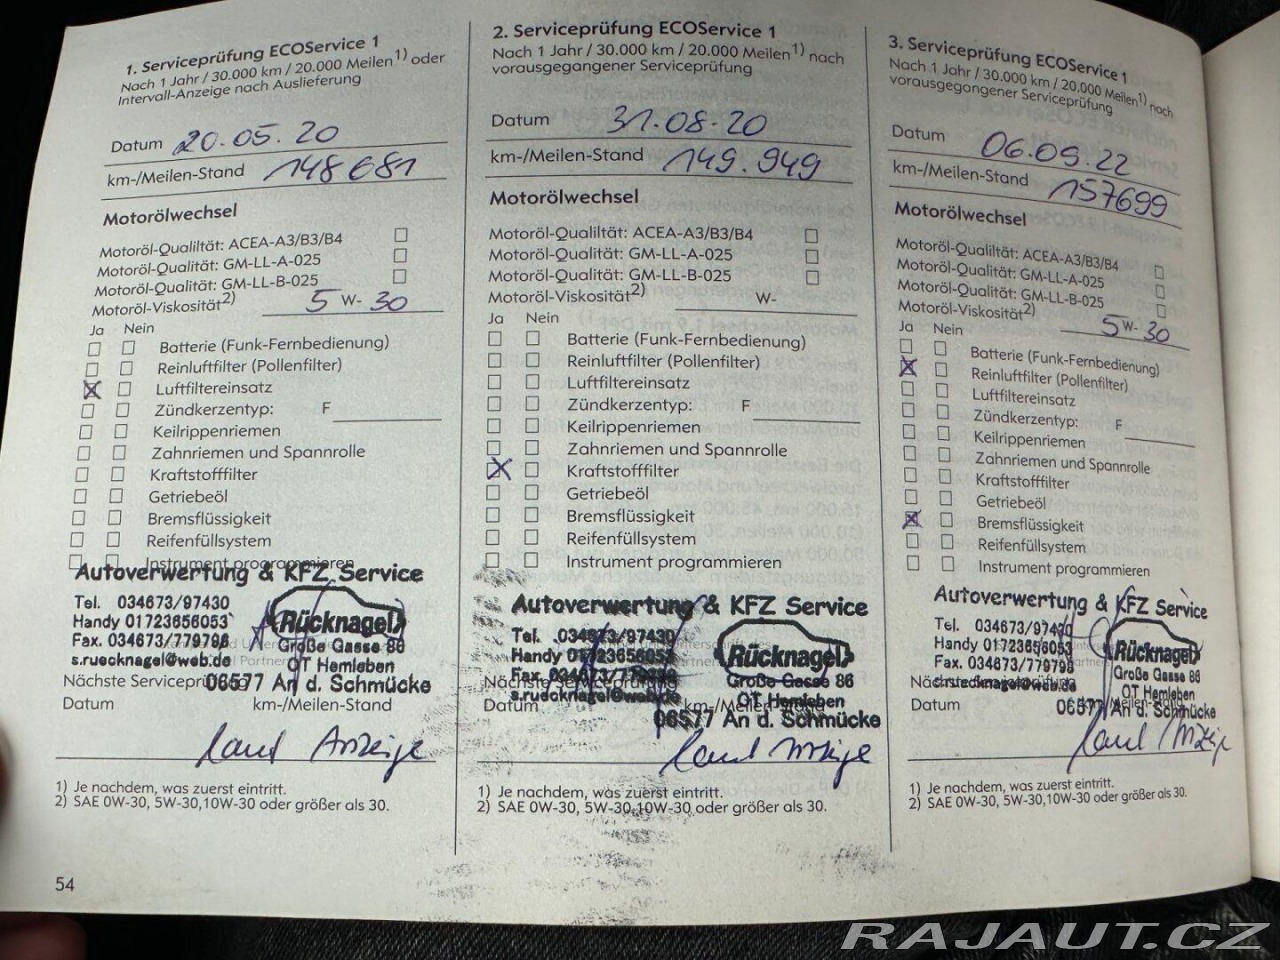 1. Serviceprüfung ECOService 1
Nach 1 Jahr / 30.000 km / 20.000 Meilen1) oder
Intervall-Anzeige nach Auslieferung
Datum 20.05.20
km-/Meilen-Stand 148681
Motorölwechsel
Motoröl-Qualiltät: ACEA-A3/B3/B4
Motoröl-Qualität: GM-LL-A-025
Motoröl-Qualität: GM-LL-B-025
Motoröl-Viskosität2) 5 W- 30
Ja Nein
Batterie (Funk-Fernbedienung)
Reinluftfilter (Pollenfilter)
Luftfiltereinsatz
Zündkerzentyp: F
Keilrippenriemen
Zahnriemen und Spannrolle
Kraftstofffilter
Getriebeöl
Bremsflüssigkeit
Reifenfüllsystem
Instrument programmieren
Autoverwertung & KFZ Service
Tel. 034673/97430
Handy 01723656053
Fax. 034673/779798
s.ruecknagel@web.de
Rücknagel
Große Gasse 86
OT Hemleben
06577 An d. Schmücke
Nächste Serviceprüfung
Datum km-/Meilen-Stand
laut Anzeige
1) Je nachdem, was zuerst eintritt.
2) SAE 0W-30, 5W-30,10W-30 oder größer als 30.
54
2. Serviceprüfung ECOService 1
Nach 1 Jahr / 30.000 km / 20.000 Meilen1) nach
vorausgegangener Serviceprüfung
Datum 31.08.20
km-/Meilen-Stand 149.949
Motorölwechsel
Motoröl-Qualiltät: ACEA-A3/B3/B4
Motoröl-Qualität: GM-LL-A-025
Motoröl-Qualität: GM-LL-B-025
Motoröl-Viskosität2) W-
Ja Nein
Batterie (Funk-Fernbedienung)
Reinluftfilter (Pollenfilter)
Luftfiltereinsatz
Zündkerzentyp: F
Keilrippenriemen
Zahnriemen und Spannrolle
Kraftstofffilter
Getriebeöl
Bremsflüssigkeit
Reifenfüllsystem
Instrument programmieren
Autoverwertung & KFZ Service
Tel. 034673/97430
Handy 01723656053
Fax. 034673/779798
s.ruecknagel@web.de
Rücknagel
Große Gasse 86
OT Hemleben
06577 An d. Schmücke
Nächste Serviceprüfung
Datum km-/Meilen-Stand
laut Anzeige
1) Je nachdem, was zuerst eintritt.
2) SAE 0W-30, 5W-30,10W-30 oder größer als 30.
3. Serviceprüfung ECOService 1
Nach 1 Jahr / 30.000 km / 20.000 Meilen1) nach
vorausgegangener Serviceprüfung
Datum 06.09.22
km-/Meilen-Stand 157699
Motorölwechsel
Motoröl-Qualiltät: ACEA-A3/B3/B4
Motoröl-Qualität: GM-LL-A-025
Motoröl-Qualität: GM-LL-B-025
Motoröl-Viskosität2) 5 W- 30
Ja Nein
Batterie (Funk-Fernbedienung)
Reinluftfilter (Pollenfilter)
Luftfiltereinsatz
Zündkerzentyp: F
Keilrippenriemen
Zahnriemen und Spannrolle
Kraftstofffilter
Getriebeöl
Bremsflüssigkeit
Reifenfüllsystem
Instrument programmieren
Autoverwertung & KFZ Service
Tel. 034673/97430
Handy 01723656053
Fax. 034673/779798
s.ruecknagel@web.de
Rücknagel
Große Gasse 86
OT Hemleben
06577 An d. Schmücke
Datum
laut Anzeige
1) Je nachdem, was zuerst eintritt.
2) SAE 0W-30, 5W-30,10W-30 oder größer als 30.
RAJAUT.CZ